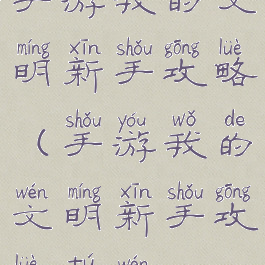 手游我的文
míng xīn shǒu gōng lüè
明新手攻略
shǒu yóu wǒ de
（手游我的
wén míng xīn shǒu gōng
文明新手攻
lüè